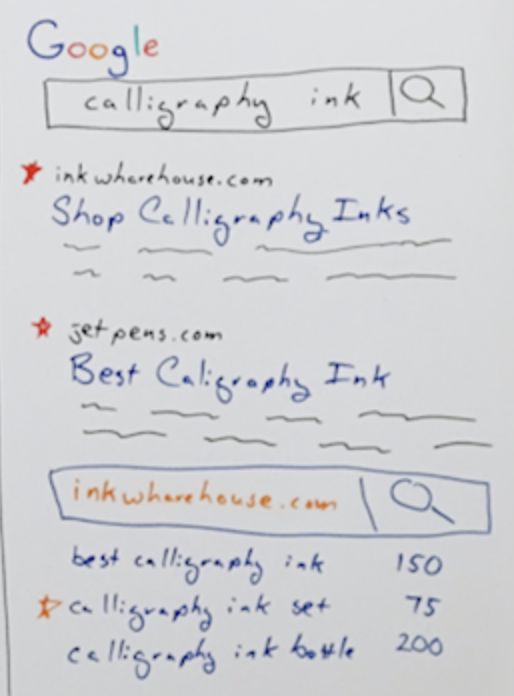 Google
calligraphy ink
inkwharehouse.com
Shop Calligraphy Inks
jetpens.com
Best Caligraphy Ink
inkwharehouse.com
best calligraphy ink 150
calligraphy ink set 75
calligraphy ink bottle 200